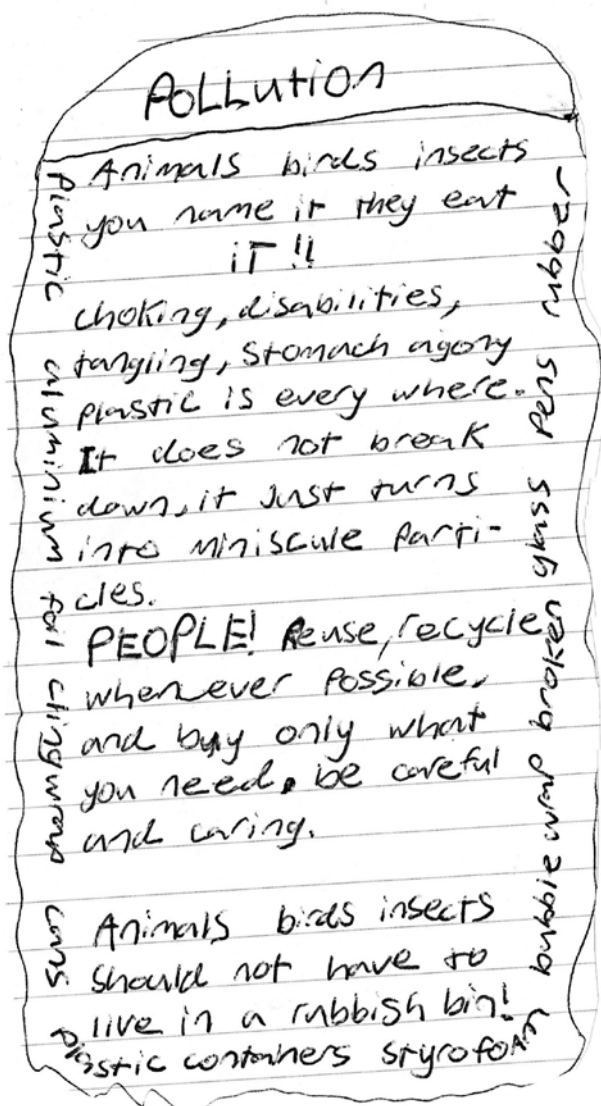 POLLUTION
Animals birds insects
you name it they eat
iT!!
choking, disabilities,
tangling, stomach agony
plastic is every where.
It does not break
down, it Just turns
into Miniscule parti-
cles.
PEOPLE! Reuse, recycle
whenever possible,
and buy only what
you need. be careful
and caring.
Animals birds insects
should not have to
live in a rubbish bin!
plastic aluminium foil clingwrap cans
plastic containers styrofoam
bubble wrap broken glass pens rubber